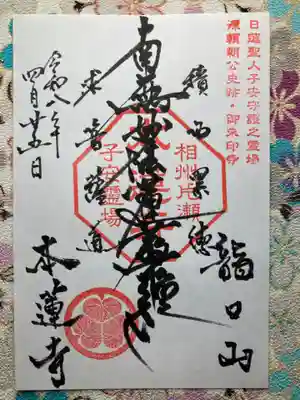 日蓮聖人子安守護之霊場
源頼朝公史跡・御朱印寺
積功累徳
相州片瀬
龍口山
南無妙法蓮華経
子安霊場
求菩薩道
本蓮寺
令和八年
四月 日